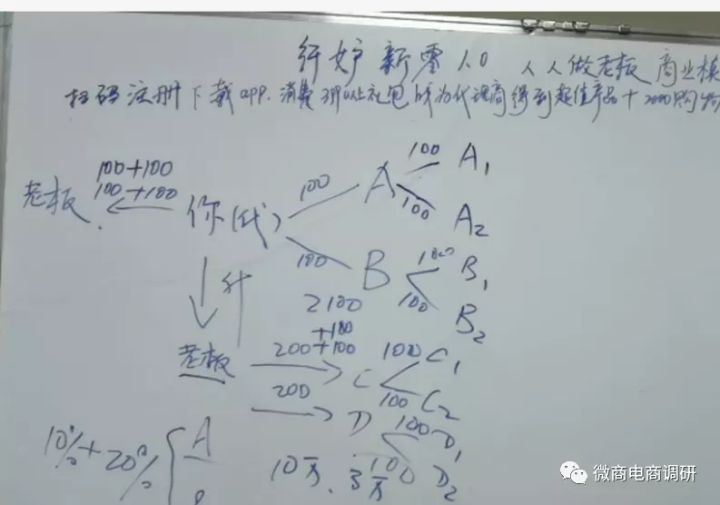 纤妒新零1.0 人人做老板 商业模
扫码注册下载app.消费399以上礼包成为代理商得到超值产品+2000购物
100+100
100+100
老板
你(代)
100
A
100
A₁
100
A₂
100
B
100
B₁
100
B₂
升
2100
+100
老板
200+100
C
100
C₁
100
C₂
200
D
100
D₁
100
D₂
10%+20%
A
10万、3万
微商电商调研